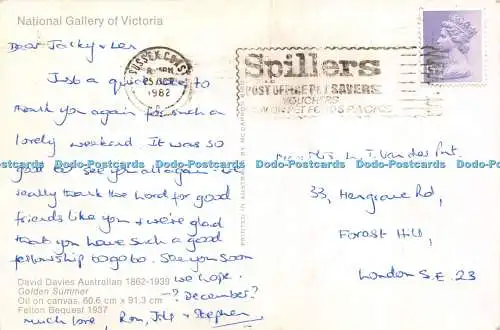 National Gallery of Victoria
Dear Jacky & Len
Just a quick note to
thank you again for such a
lovely weekend. It was so
good to see you all again. We
really thank the Lord for good
friends like you & we're glad
that you have such a good
fellowship to go to. See you soon
we hope.
-? December?
much love, Ron, & Stephen
David Davies Australian 1862-1939
Golden Summer
Oil on canvas, 60.6 cm x 91.3 cm
Felton Bequest 1937
PRINTED IN AUSTRALIA BY
SUSSEX COAST
PM
25
1982
Spillers
POST OFFICE PET SAVERS
VOUCHERS
ON PET FOODS PACKS
Mr & Mrs L. T.
33, Hengrave Rd,
Forest Hill,
London S.E. 23
Dodo-Postcards Dodo-Postcards Dodo-Postcards Dodo-Postcards Dodo-Postcards